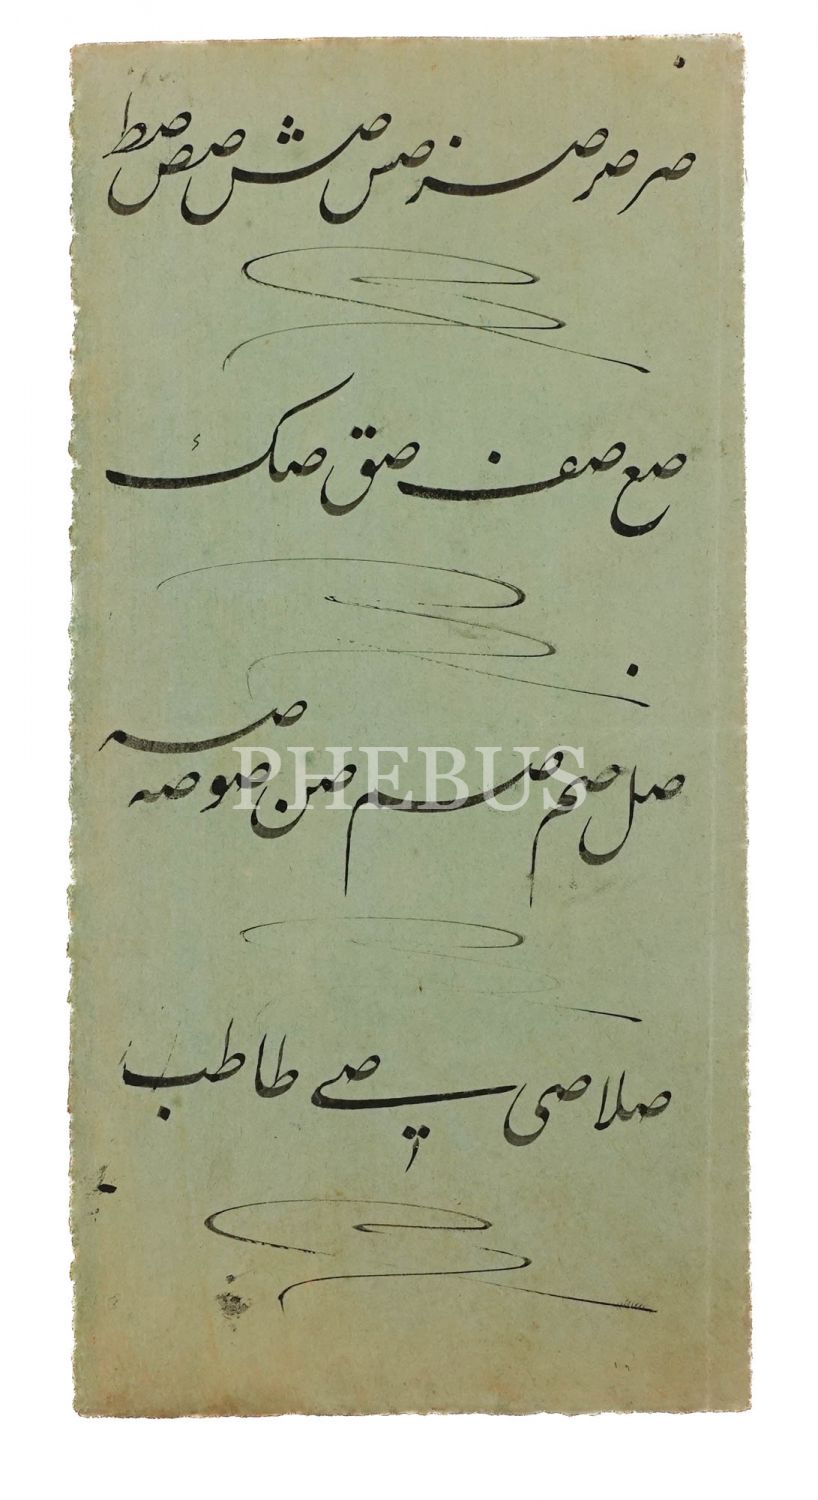 صر صر صز صس صش صص صط
صع صف صق صک
صل صم صم صن صو صه صه
صلا صی صے طا طب
PHEBUS